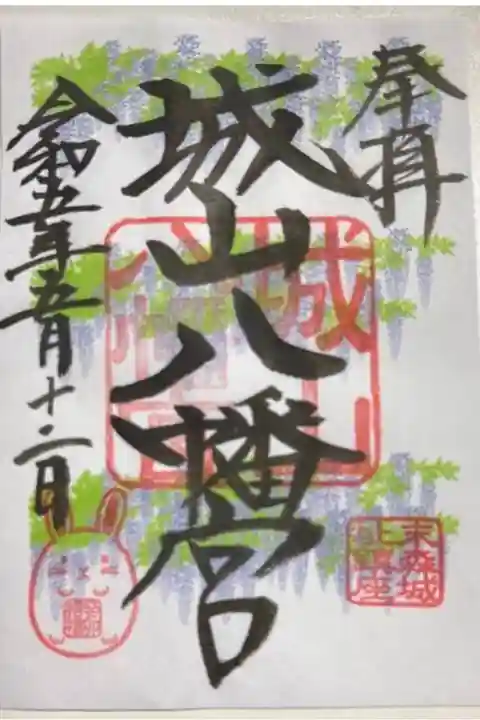 奉拝
城山八幡宮
令和五年五月十二日
城山
八幡宮
末森城
址鎮座